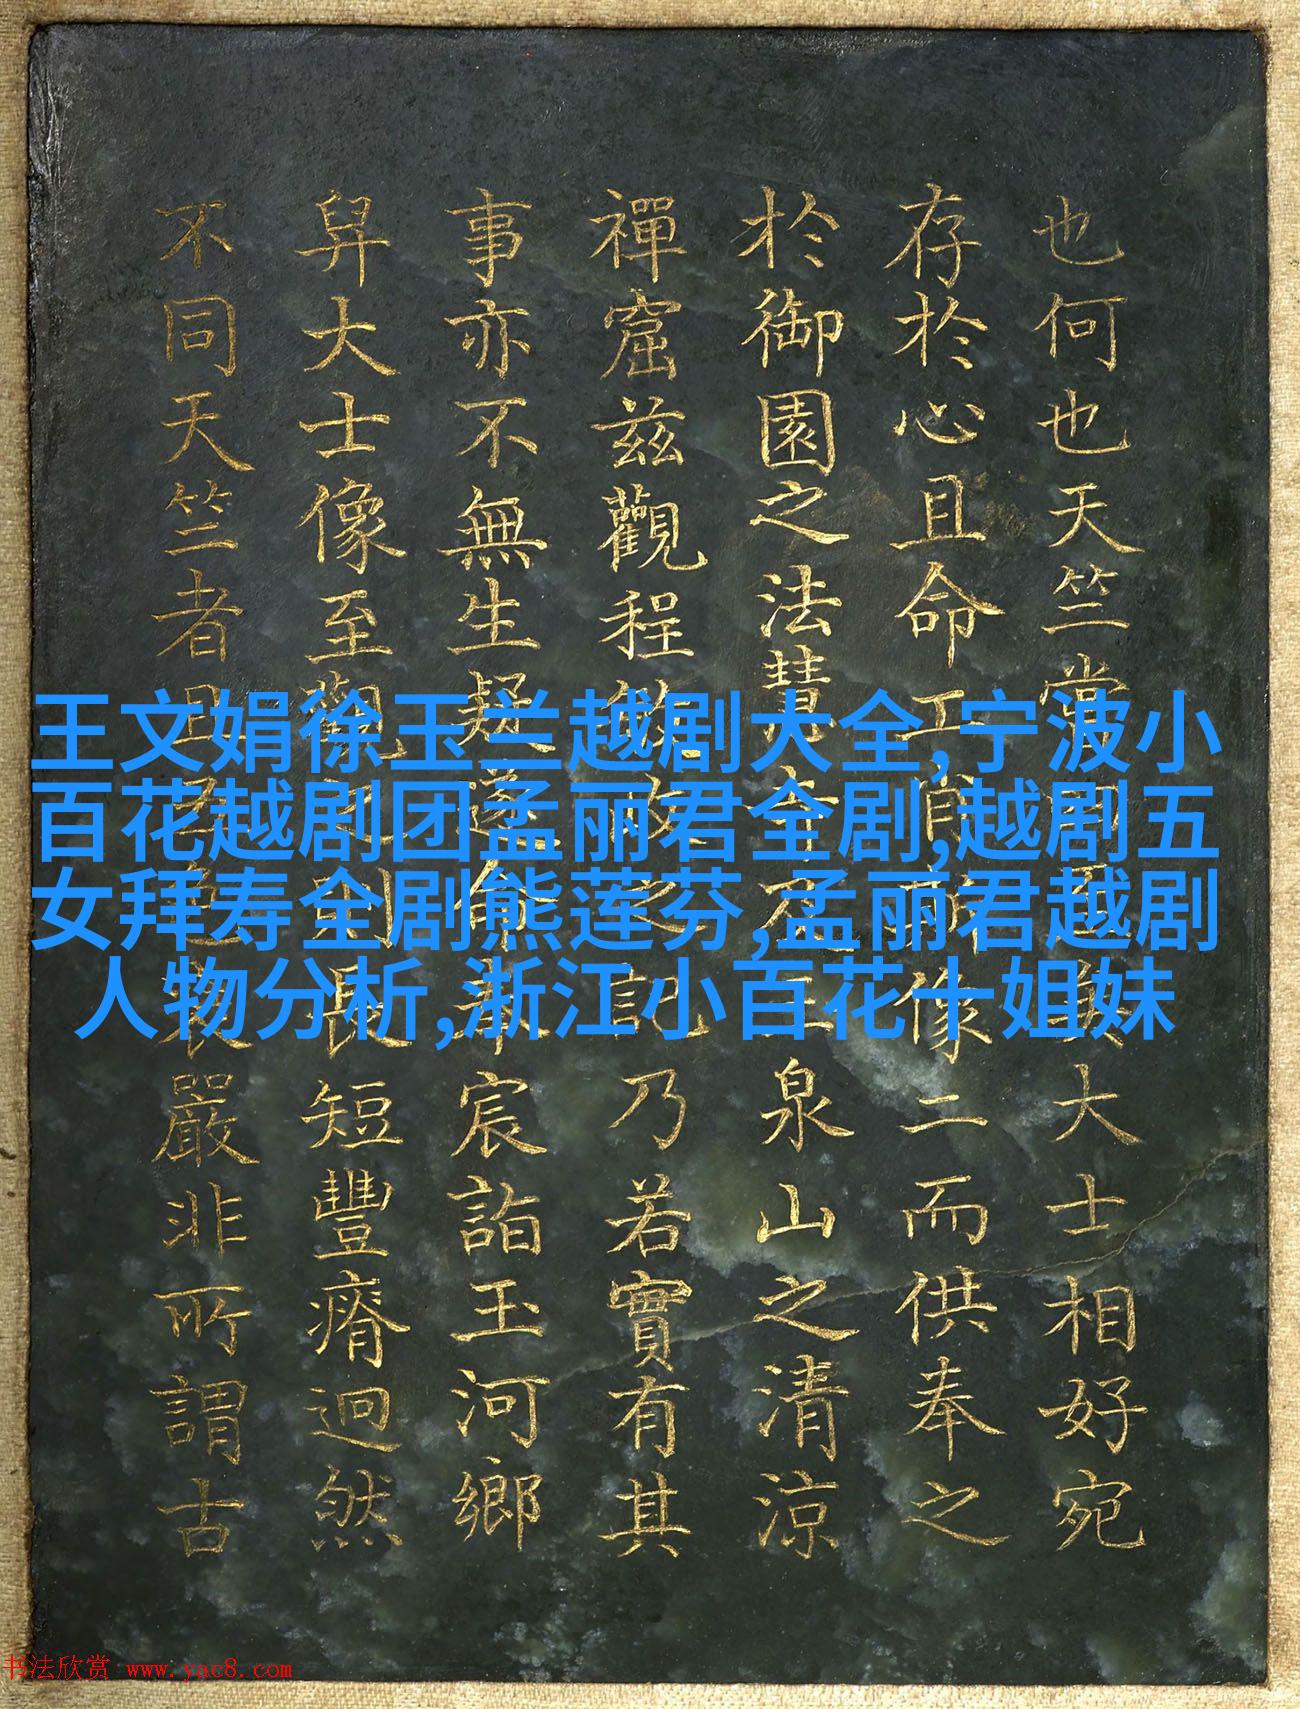 王文娟徐玉兰越剧大全,宁波小
百花越剧团孟丽君全剧,越剧五
女拜寿全剧熊莲芬,孟丽君越剧
人物分析,浙江小百花十姐妹
也何也天竺大士相好宛
存於心且命工像二而供奉之
於御園之法慧泉山之清涼
禪窟茲觀程之記乃若實有其
事亦不無生疑遂命宸詣玉河鄉
舁大士像至觀則短豐瘠迥然
不同天竺者嚴非所謂古
书法欣赏 www.yac8.com